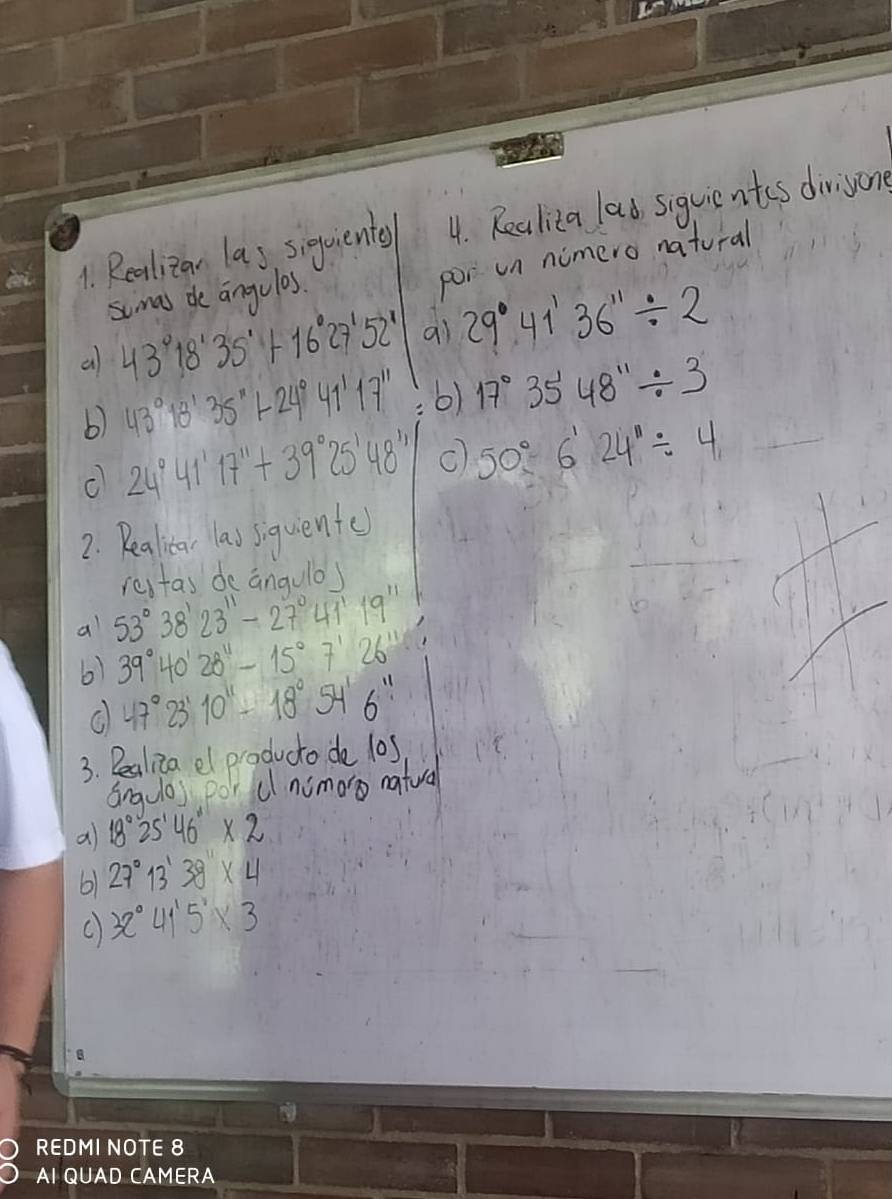 1. Realizar las siguientes
sumas de ángulos.
a) 43°18'35' + 16°27'52'
b) 43°18'35" + 24°41'17"
c) 24°41'17" + 39°25'48"
2. Realizar las siguientes
restas de ángulos
a) 53°38'23" - 27°41'19"
b) 39°40'28" - 15°7'26"
c) 47°23'10" - 18°54'6"
3. Realiza el producto de los
ángulos por el número natural
a) 18°25'46" x 2
b) 27°13'38" x 4
c) 32°41'5' x 3
4. Realiza las siguientes divisone
por un número natural
a) 29°41'36" ÷ 2
b) 17°35'48" ÷ 3
c) 50° 6' 24" ÷ 4
REDMI NOTE 8
AI QUAD CAMERA